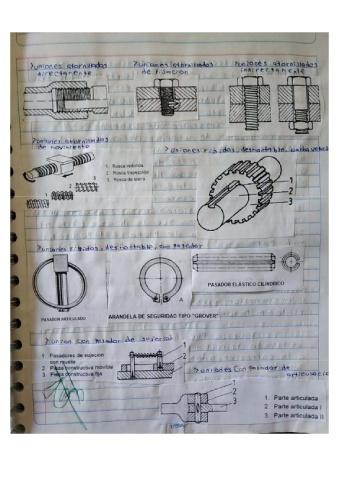 uniones atornilladas directamente
uniones atornilladas de fijacion
uniones atornilladas indirectamente
uniones atornilladas de movimiento
1. Rosca redonda
2. Rosca trapecial
3. Rosca de sierra
uniones rígidas, desmontable,
1
2
3
uniones rígidas, desmontable, con pasador
PASADOR ARTICULADO
A
ARANDELA DE SEGURIDAD TIPO "GROVER"
PASADOR ELÁSTICO CILINDRICO
union con pasador de sujecion
1 Pasadores de sujecion con muelle
2 Pieza constructiva movible
3 Pieza constructiva fija
1
2
3
uniones con pasador de articulacion
1
2
3
1 Parte articulada
2 Parte articulada I
3. Parte articulada II